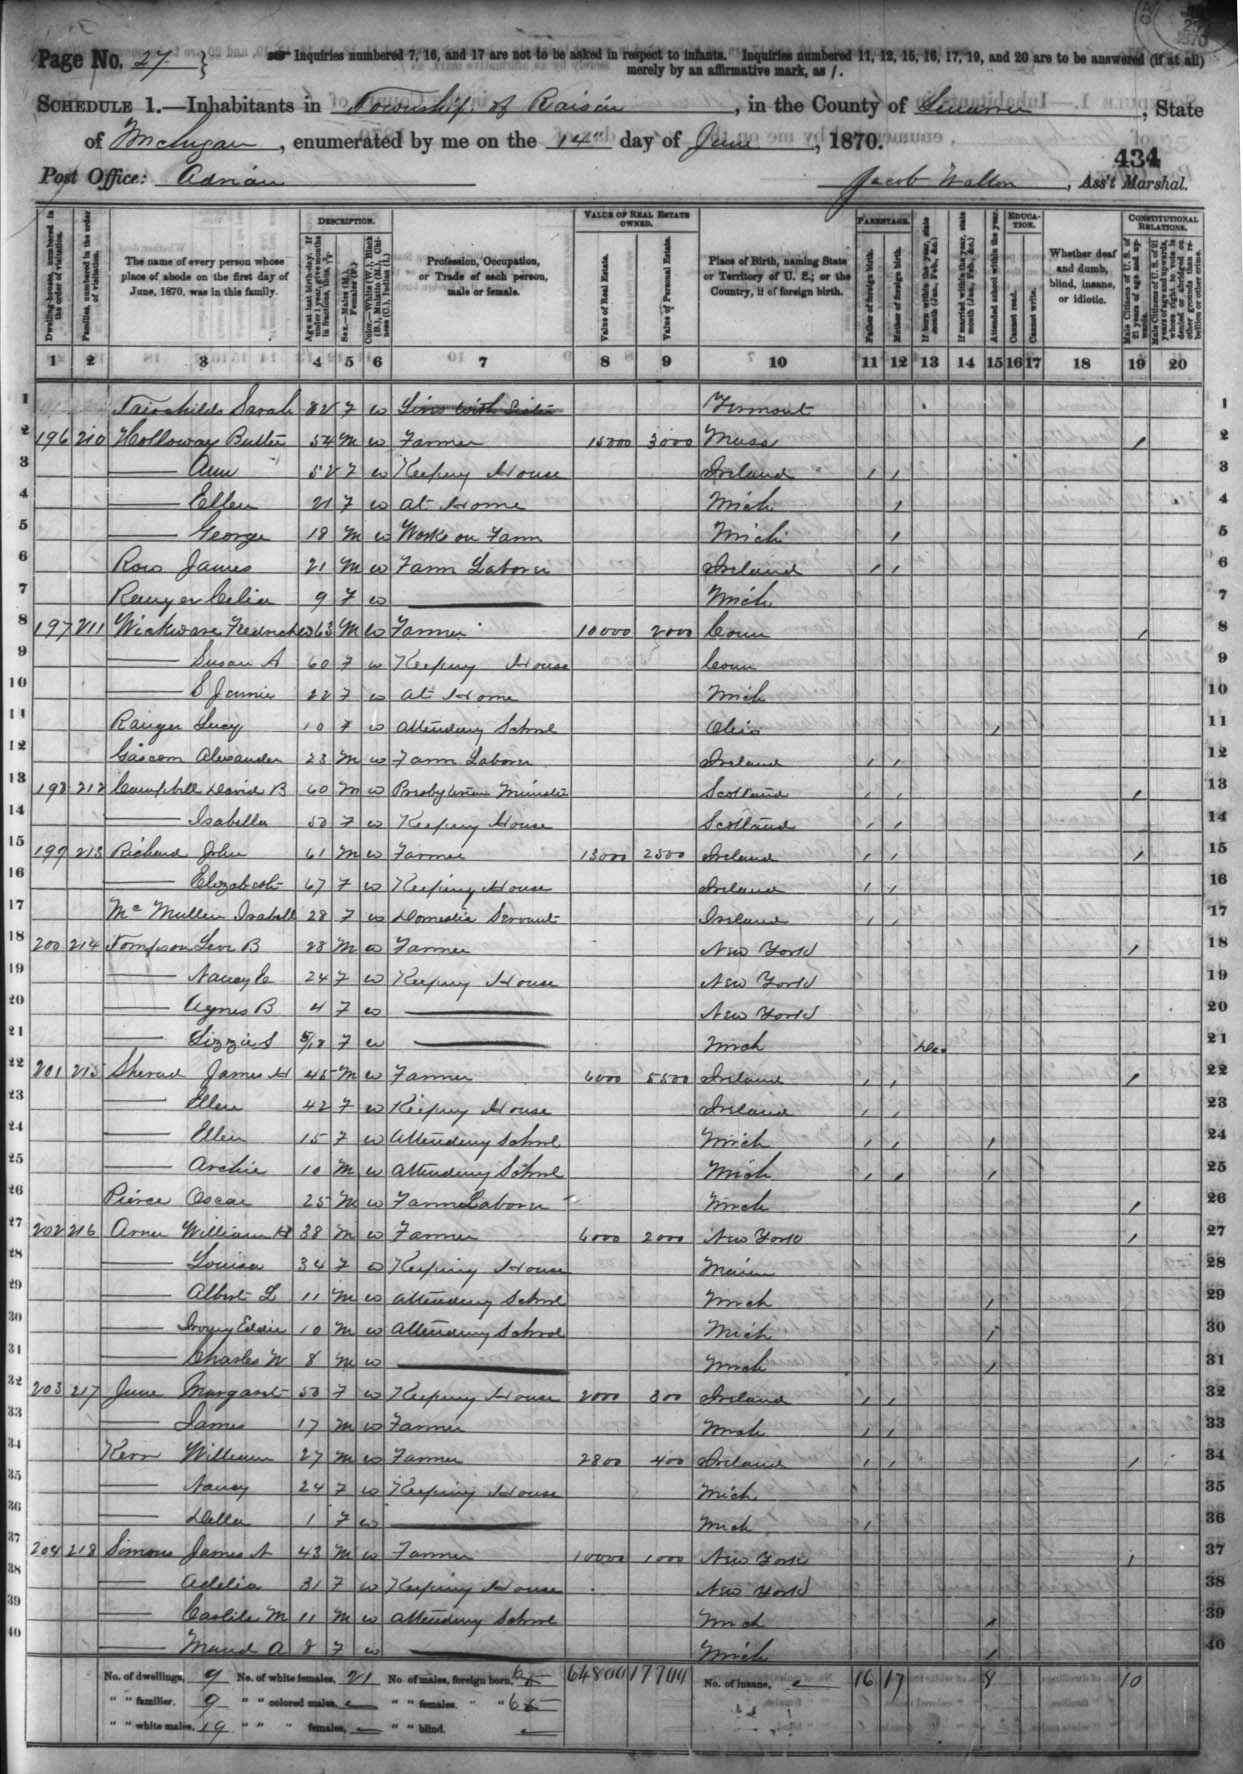 Page No. 27
Inquiries numbered 7, 16, and 17 are not to be asked in respect to infants. Inquiries numbered 11, 12, 15, 16, 17, 19, and 20 are to be answered (if at all)
merely by an affirmative mark, as /.
SCHEDULE 1.—Inhabitants in Township of Raisin, in the County of Lenawee, State
of Michigan, enumerated by me on the 14" day of June, 1870.
434
Post Office: Adrian Jacob Walton, Ass't Marshal.
DESCRIPTION. VALUE OF REAL ESTATE OWNED. PARENTAGE. EDUCATION. CONSTITUTIONAL RELATIONS.
Dwelling-houses, numbered in the order of visitation.
Families, numbered in the order of visitation.
The name of every person whose place of abode on the first day of June, 1870, was in this family.
Age at last birth-day. If under 1 year, give months in fractions, thus, 3/12
Sex.—Males (M.), Females (F.)
Color.—White (W.), Black (B.), Mulatto (M.), Chinese (C.), Indian (I.)
Profession, Occupation, or Trade of each person, male or female.
Value of Real Estate.
Value of Personal Estate.
Place of Birth, naming State or Territory of U. S.; or the Country, if of foreign birth.
Father of foreign birth.
Mother of foreign birth.
If born within the year, state month (Jan., Feb., &c.)
If married within the year, state month (Jan., Feb., &c.)
Attended school within the year.
Cannot read.
Cannot write.
Whether deaf and dumb, blind, insane, or idiotic.
Male Citizens of U. S. of 21 years of age and upwards.
Male Citizens of U. S. of 21 years of age and upwards, whose right to vote is denied or abridged on other grounds than rebellion or other crime.
1 2 3 4 5 6 7 8 9 10 11 12 13 14 15 16 17 18 19 20
1 Fairchilds Sarah 82 F W Lives with Sister Vermont 1
2 196 210 Holloway Butler 54 M W Farmer 15000 3000 Mass / 2
3 —— Ann 52 F W Keeping House Ireland / / 3
4 —— Ellen 21 F W At Home Mich / 4
5 —— George 18 M W Works on Farm Mich / 5
6 Row James 21 M W Farm Laborer Ireland / / 6
7 Ranger Celia 9 F W —— Mich 7
8 197 211 Wickware Fredrick W 63 M W Farmer 10000 2000 Conn / 8
9 —— Susan A 60 F W Keeping House Conn 9
10 —— S Jennie 22 F W At Home Mich 10
11 Ranger Lucy 10 F W Attending School Ohio / 11
12 Gascom Alexander 23 M W Farm Laborer Ireland / / 12
13 198 212 Campbell David B 60 M W Presbyterian Minister Scotland / / / 13
14 —— Isabella 50 F W Keeping House Scotland / / 14
15 199 213 Richard John 61 M W Farmer 13000 2500 Ireland / / / 15
16 —— Elizabeth 67 F W Keeping House Ireland / / 16
17 Mc Mullen Isabell 28 F W Domestic Servant Ireland / / 17
18 200 214 Tompson Levi B 28 M W Farmer New York / 18
19 —— Nancy E 24 F W Keeping House New York 19
20 —— Agnes B 4 F W —— New York 20
21 —— Lizzie S 5/12 F W —— Mich Dec 21
22 201 215 Sherad James H 45 M W Farmer 6000 5500 Ireland / / / 22
23 —— Ellen 42 F W Keeping House Ireland / / 23
24 —— Ellen 15 F W Attending School Mich / / / 24
25 —— Archie 10 M W Attending School Mich / / / 25
26 Pierce Oscar 25 M W Farm Laborer Mich / 26
27 202 216 Arner William H 38 M W Farmer 6000 2000 New York / 27
28 —— Louisa 34 F W Keeping House Maine 28
29 —— Albert L 11 M W Attending School Mich / 29
30 —— Eddie 10 M W Attending School Mich / 30
31 —— Charles W 8 M W —— Mich / 31
32 203 217 June Margaret 50 F W Keeping House 2000 300 Ireland / / 32
33 —— James 17 M W Farmer Mich / / 33
34 Kerr William 27 M W Farmer 2800 400 Ireland / / / 34
35 —— Nancy 24 F W Keeping House Mich 35
36 —— Della 1 F W —— Mich / 36
37 204 218 Simons James A 43 M W Farmer 10000 1000 New York / 37
38 —— Adelia 31 F W Keeping House New York 38
39 —— Carlile M 11 M W Attending School Mich / 39
40 —— Maud A 8 F W —— Mich / 40
No. of dwellings, 9 No. of white females, 21 No. of males, foreign born, 6 64800 17700 No. of insane, — 16 17 8 10
" " families. 9 " " colored males, — " " females. " " 6
" " white males, 19 " " " females, — " " blind. —